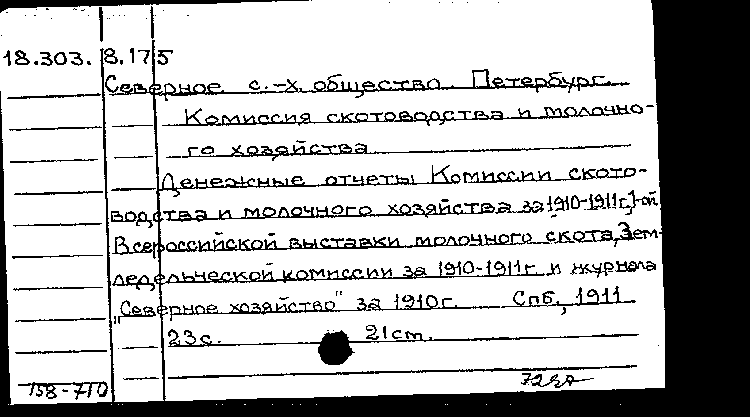 18.303.8.175
Северное с.-х. общество. Петербург.
Комиссия скотоводства и молочно-
го хозяйства
Денежные отчеты Комиссии ското-
водства и молочного хозяйства за 1910-1911г, 1-ой
Всероссийской выставки молочного скота, Зем-
ледельческой комиссии за 1910-1911г и журнала
"Северное хозяйство" за 1910г. Спб, 1911
23с. 21см.
158-710